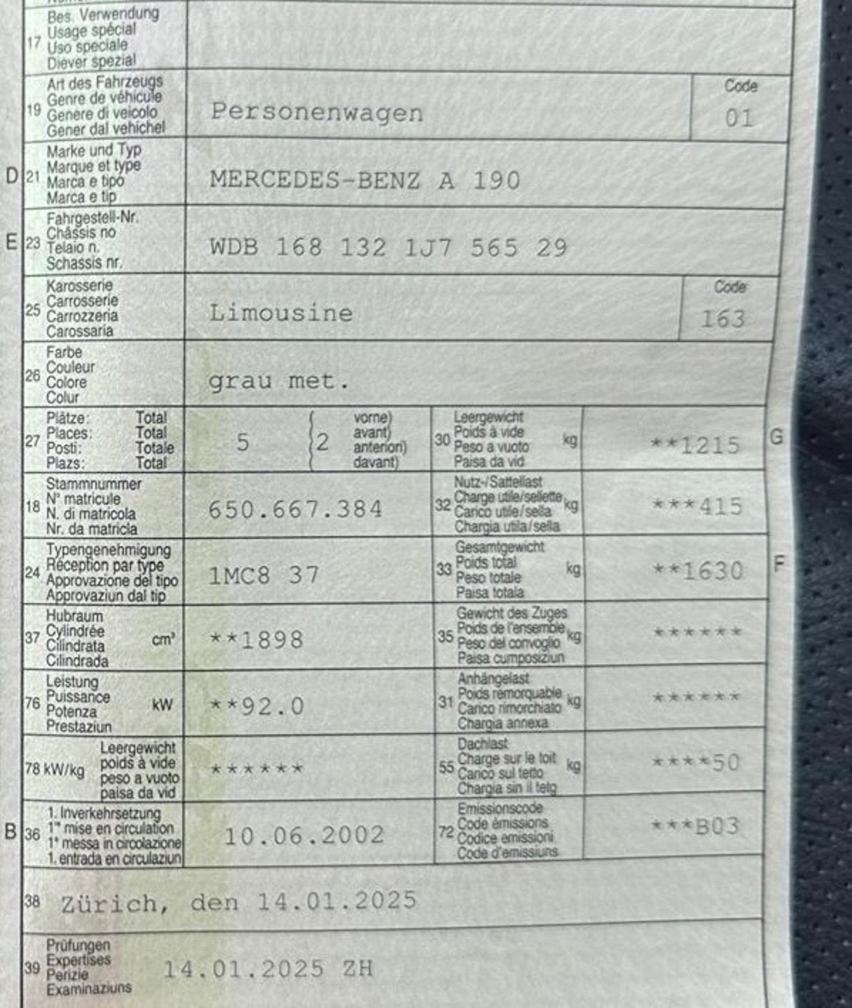 17 Bes. Verwendung
Usage spécial
Uso speciale
Diever spezial
19 Art des Fahrzeugs
Genre de véhicule
Genere di veicolo
Gener dal vehichel
Personenwagen
Code
01
D 21 Marke und Typ
Marque et type
Marca e tipo
Marca e tip
MERCEDES-BENZ A 190
E 23 Fahrgestell-Nr.
Châssis no
Telaio n.
Schassis nr.
WDB 168 132 1J7 565 29
25 Karosserie
Carrosserie
Carrozzeria
Carossaria
Limousine
Code
163
26 Farbe
Couleur
Colore
Colur
grau met.
27 Plätze: Total
Places: Total
Posti: Totale
Plazs: Total
5 2 vorne)
avant)
anteriori)
davant)
30 Leergewicht
Poids à vide
Peso a vuoto
Paisa da vid
kg
**1215 G
18 Stammnummer
N° matricule
N. di matricola
Nr. da matricla
650.667.384
32 Nutz-/Sattellast
Charge utile/sellette
Carico utile/sella
Chargia utila/sella
kg
***415
24 Typengenehmigung
Réception par type
Approvazione del tipo
Approvaziun dal tip
1MC8 37
33 Gesamtgewicht
Poids total
Peso totale
Paisa totala
kg
**1630 F
37 Hubraum
Cylindrée
Cilindrata
Cilindrada
cm³
**1898
35 Gewicht des Zuges
Poids de l'ensemble
Peso del convoglio
Paisa cumposiziun
kg
******
76 Leistung
Puissance
Potenza
Prestaziun
kW
**92.0
31 Anhängelast
Poids remorquable
Carico rimorchiato
Chargia annexa
kg
******
78 kW/kg Leergewicht
poids à vide
peso a vuoto
paisa da vid
******
55 Dachlast
Charge sur le toit
Carico sul tetto
Chargia sin il tetg
kg
****50
B 36 1. Inverkehrsetzung
1re mise en circulation
1a messa in circolazione
1. entrada en circulaziun
10.06.2002
72 Emissionscode
Code émissions
Codice emissioni
Code d'emissiuns
***B03
38 Zürich, den 14.01.2025
39 Prüfungen
Expertises
Perizie
Examinaziuns
14.01.2025 ZH